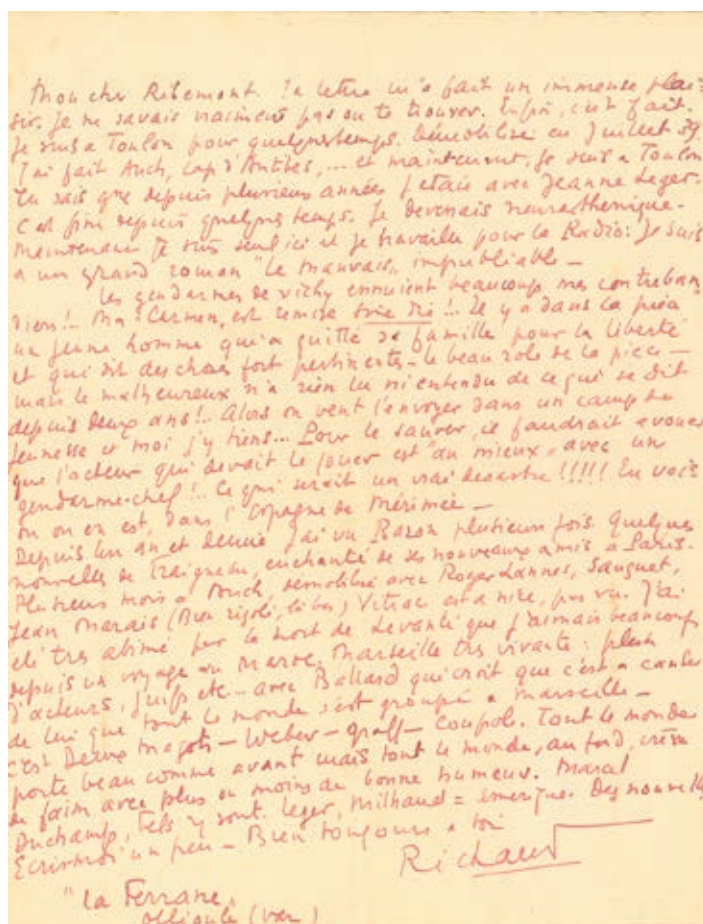 Mon cher Ribemont. Ta lettre m'a fait un immense plai-
sir. Je ne savais vraiment pas où te trouver. Enfin, c'est fait.
Je suis à Toulon pour quelques temps. Démobilisé en Juillet 39.
J'ai fait Auch, Cap d'Antibes, ... et maintenant, je suis à Toulon
Tu sais que depuis plusieurs années j'étais avec Jeanne Leger.
C'est fini depuis quelques temps. Je devenais neurasthenique.
Maintenant je suis seul ici et je travaille pour la Radio: Je suis
à un grand roman "Le Mauvais" impubliable —
Les gendarmes de Vichy ennuient beaucoup mes contreban
diers!.. Ma "Carmen" est remise !.. Il y a dans la pièce
un jeune homme qui a quitté sa famille pour la liberté
et qui dit des choses fort pertinentes — le beau role de la piece —
mais le malheureux n'a rien lu ni entendu de ce qui se dit
depuis deux ans!.. Alors on veut l'envoyer dans un camp de
Jeunesse et moi j'y tiens... Pour le sauver, il faudrait avouer
que l'acteur qui devait le jouer est "au mieux" avec un
gendarme-chef!.. Ce qui serait un vrai desastre!!!!! Tu vois
où on en est, dans l'Espagne de Mérimée —
Depuis un an et demie j'ai vu plusieurs fois. Quelques
nouvelles de Fraigneau, enchanté de ses nouveaux amis à Paris.
Plusieurs mois à Auch, démobilisé avec Roger Lannes, Sauguet,
Jean Marais (Bien rigolé, ) Vitrac est à Nice, pas vu. J'ai
été très abimé par la mort de Levanti que j'aimais beaucoup
depuis un voyage au Maroc. Marseille très vivante; plein
d'acteurs, Juifs etc — avec Ballard qui croit que c'est à cause
de lui que tout le monde s'est groupé à Marseille —
C'est Deux Magots — Weber — Graff — Coupol. Tout le monde
porte beau comme avant mais tout le monde, au fond, crève
de faim avec plus ou moins de bonne humeur. Marcel
Duchamp, y sont. Leger, Milhaud = Amerique. Des nouvelles
Ecris-moi un peu — Bien toujours à toi
Richaud
"La Ferrane"
Ollioule (Var)